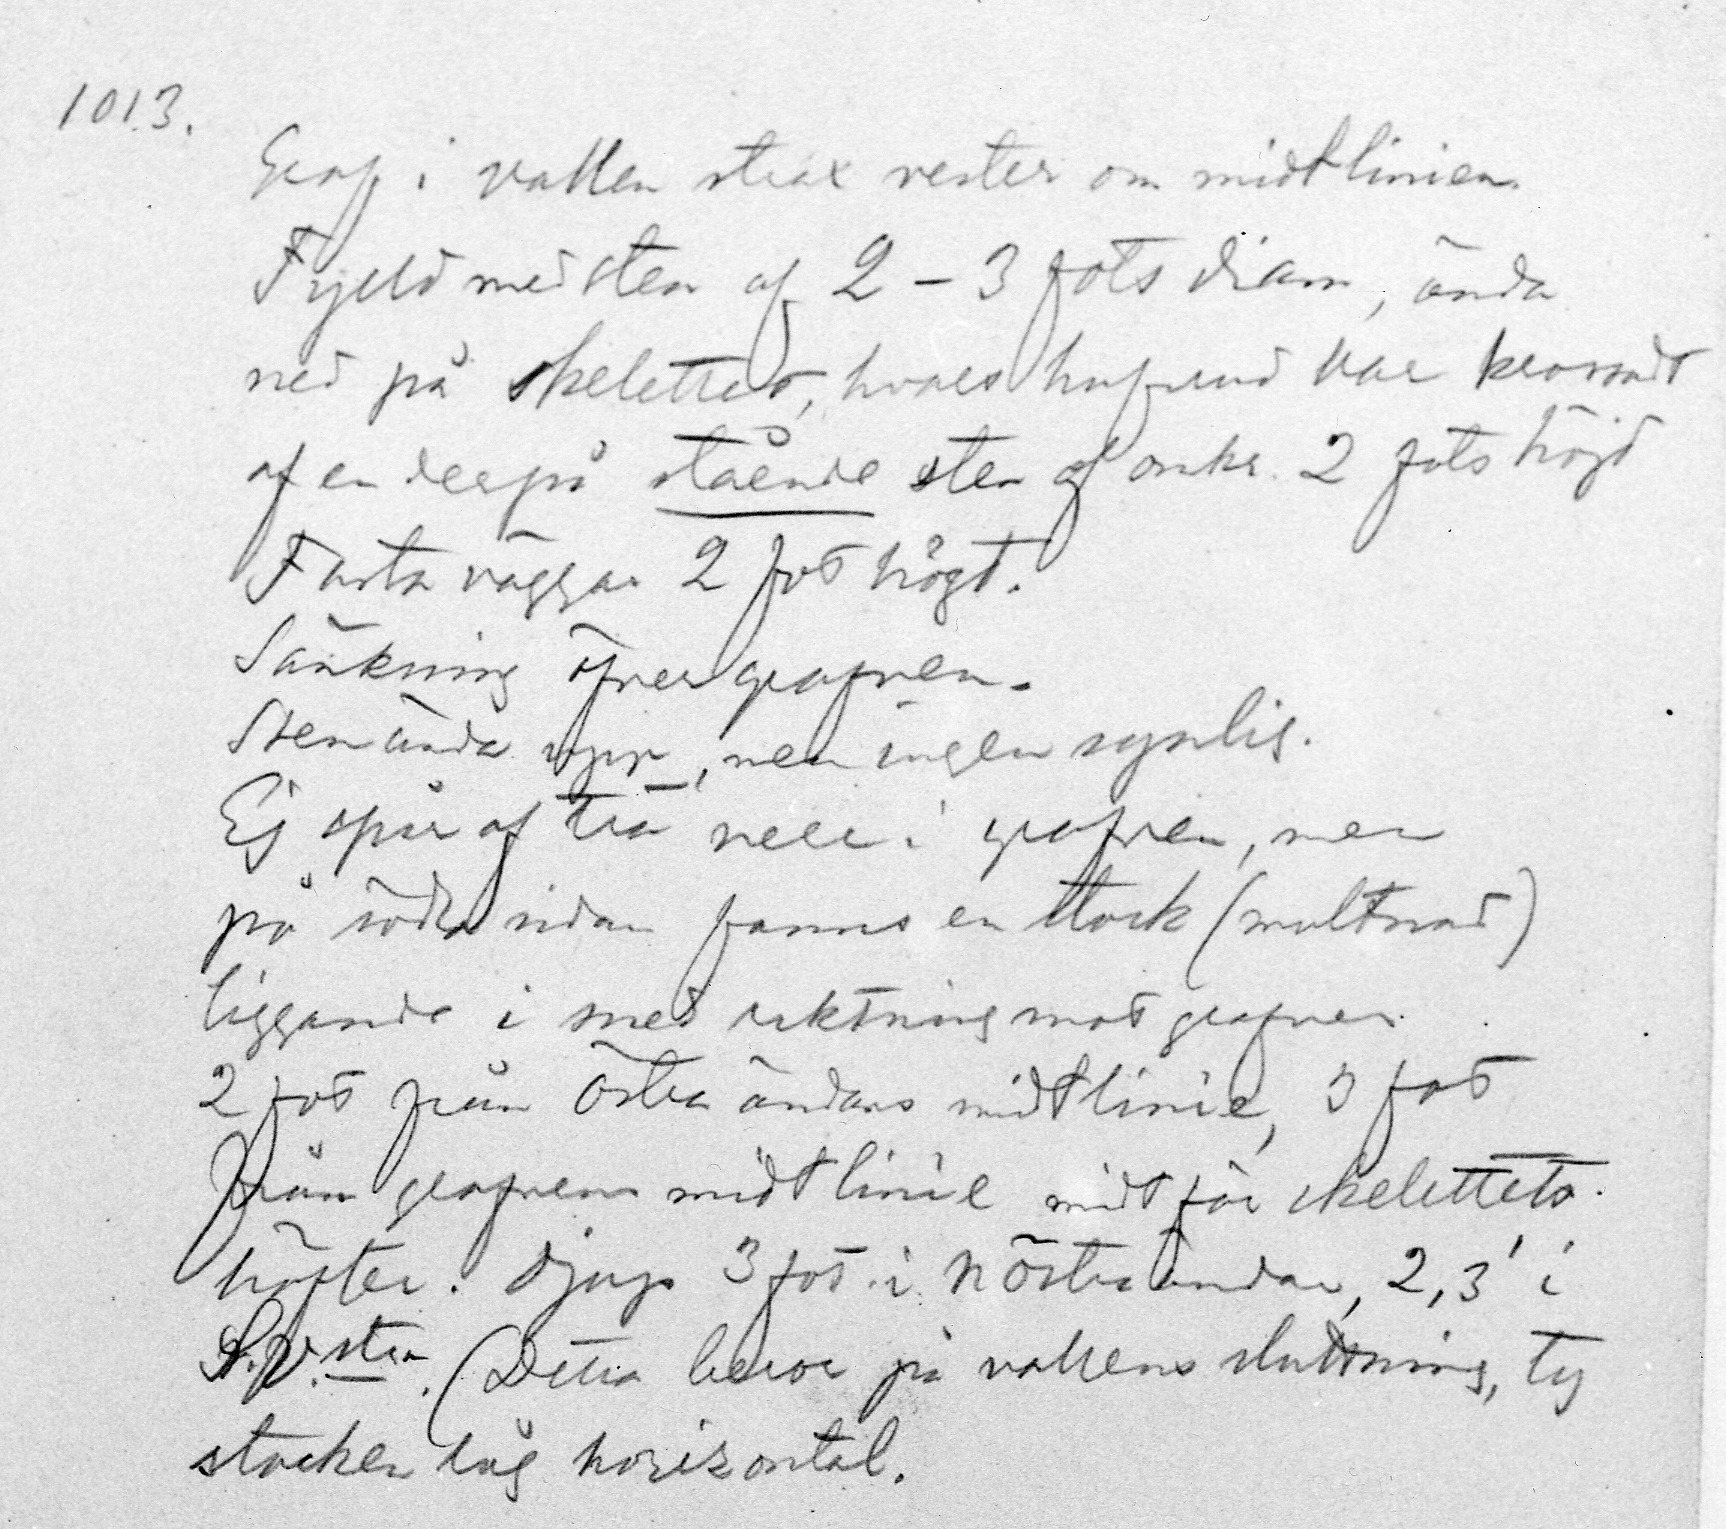 1013.
Graf i vallen strax vester om midtlinien.
Fyeld med sten af 2 – 3 fots diam, ända
ned på skelettet, hvars hufvud var krossadt
af en derpå stående sten af omkr. 2 fots höjd
Fasta väggar 2 fot högt.
Sänkning öfver grafven.
Sten ända upp, men ingen synlig.
Ej spår af trä nere i grafven, men
på södra sidan fanns en stock (multnad)
liggande i sned riktning mot grafven.
2 fot från östra ändans midtlinie, 3 fot
från grafvens midtlinie midt för skelettets
höfter. Djup 3 fot i N östra ändan, 2,3' i
S.V.stra. (Detta beror på vallens sluttning, ty
stocken låg horizontal.